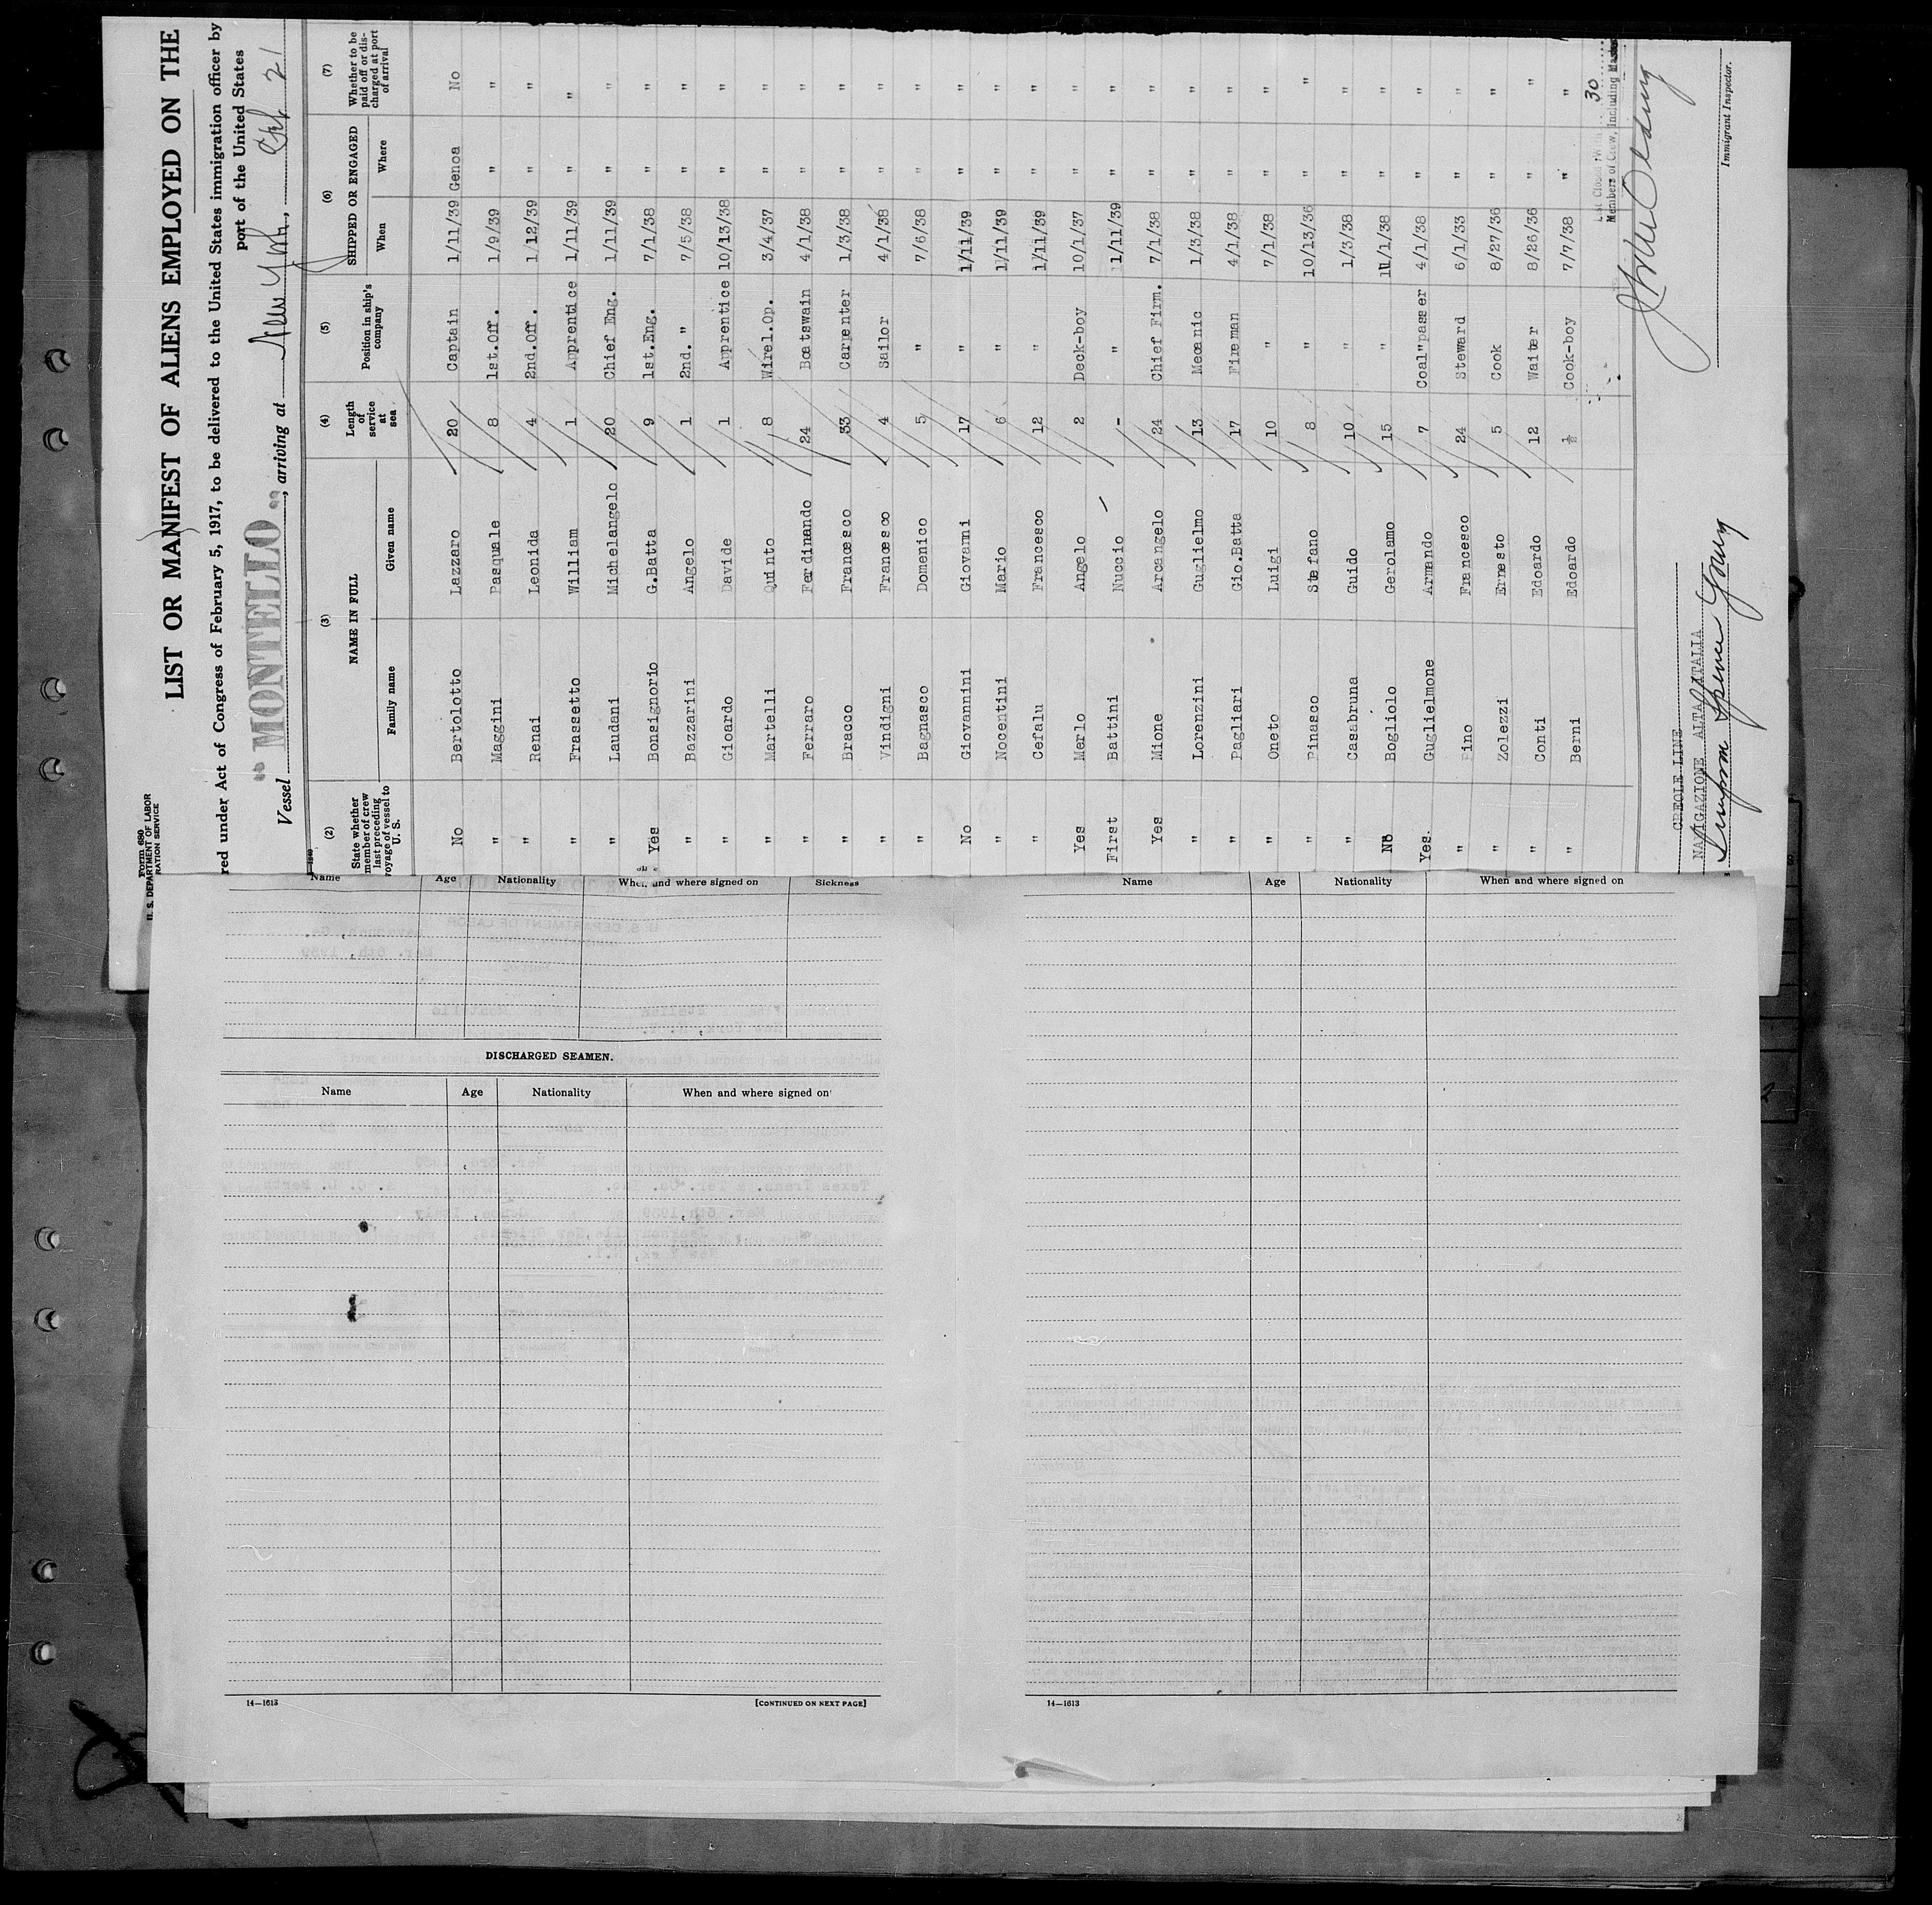 Form 680
U. S. DEPARTMENT OF LABOR
RATION SERVICE
LIST OR MANIFEST OF ALIENS EMPLOYED ON THE
red under Act of Congress of February 5, 1917, to be delivered to the United States immigration officer by
port of the United States
Vessel "MONTELLO", arriving at New York, Feb 21
(2) (3) (4) (5) (6) (7)
State whether member of crew last preceding voyage of vessel to U. S. NAME IN FULL Length of service at sea Position in ship's company SHIPPED OR ENGAGED Whether to be paid off or discharged at port of arrival
Family name Given name When Where
No Bertolotto Lazzaro 20 Captain 1/11/39 Genoa No
" Maggini Pasquale 8 1st.Off. 1/9/39 " "
" Renai Leonida 4 2nd.Off. 1/12/39 " "
" Frassetto William 1 Apprentice 1/11/39 " "
" Laudani Michelangelo 20 Chief Eng. 1/11/39 " "
Yes Bonsignorio G.Batta 9 1st.Eng. 7/1/38 " "
" Bazzarini Angelo 1 2nd. " 7/5/38 " "
" Gioardo Davide 1 Apprentice 10/13/38 " "
" Martelli Quinto 8 Wirel.Op. 3/4/37 " "
" Ferraro Ferdinando 24 Boatswain 4/1/38 " "
" Bracco Francesco 33 Carpenter 1/3/38 " "
" Vindigni Francesco 4 Sailor 4/1/38 " "
" Bagnasco Domenico 5 " 7/6/38 " "
No Giovannini Giovanni 17 " 1/11/39 " "
" Nocentini Mario 6 " 1/11/39 " "
" Cefalu Francesco 12 " 1/11/39 " "
Yes Merlo Angelo 2 Deck-boy 10/1/37 " "
First Battini Nuccio - " 11/11/39 " "
Yes Mione Arcangelo 24 Chief Firm. 7/1/38 " "
" Lorenzini Guglielmo 13 Mecanic 1/3/38 " "
" Pagliari Gio.Batta 17 Fireman 4/1/38 " "
" Oneto Luigi 10 " 7/1/38 " "
" Pinasco Stefano 8 " 10/13/36 " "
" Casabruna Guido 10 " 1/3/38 " "
No Bogliolo Gerolamo 15 " 11/1/38 " "
Yes. Guglielmone Armando 7 Coal"passer 4/1/38 " "
" Pino Francesco 24 Steward 6/1/33 " "
" Zolezzi Ernesto 5 Cook 8/27/36 " "
" Conti Edoardo 12 Waiter 8/26/36 " "
" Berni Edoardo ½ Cook-boy 7/7/38 " "
List Closed With 30
Members of Crew, Including Master
CREOLE LINE
NAVIGAZIONE ALTA ITALIA
Simpson Spence Young
Immigrant Inspector.
Name Age Nationality When and where signed on Sickness
DISCHARGED SEAMEN.
Name Age Nationality When and where signed on
14—1613 [CONTINUED ON NEXT PAGE]
Name Age Nationality When and where signed on
14—1613
2